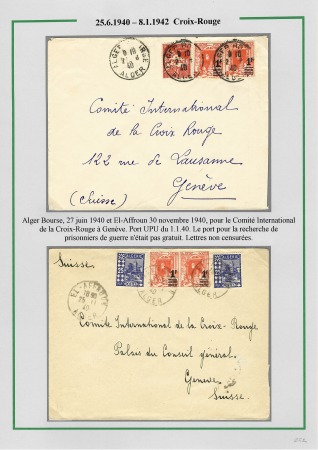 25.6.1940 – 8.1.1942 Croix-Rouge
ALGER
Comité International
de la Croix Rouge
122 rue de Lausanne
Genève
(Suisse)
Alger Bourse, 27 juin 1940 et El-Affroun 30 novembre 1940, pour le Comité International
de la Croix-Rouge à Genève. Port UPU du 1.1.40. Le port pour la recherche de
prisonniers de guerre n'était pas gratuit. Lettres non censurées.
Suisse
ALGER
Comité International de la Croix-Rouge
Palais du Conseil général.
Geneve
Suisse.